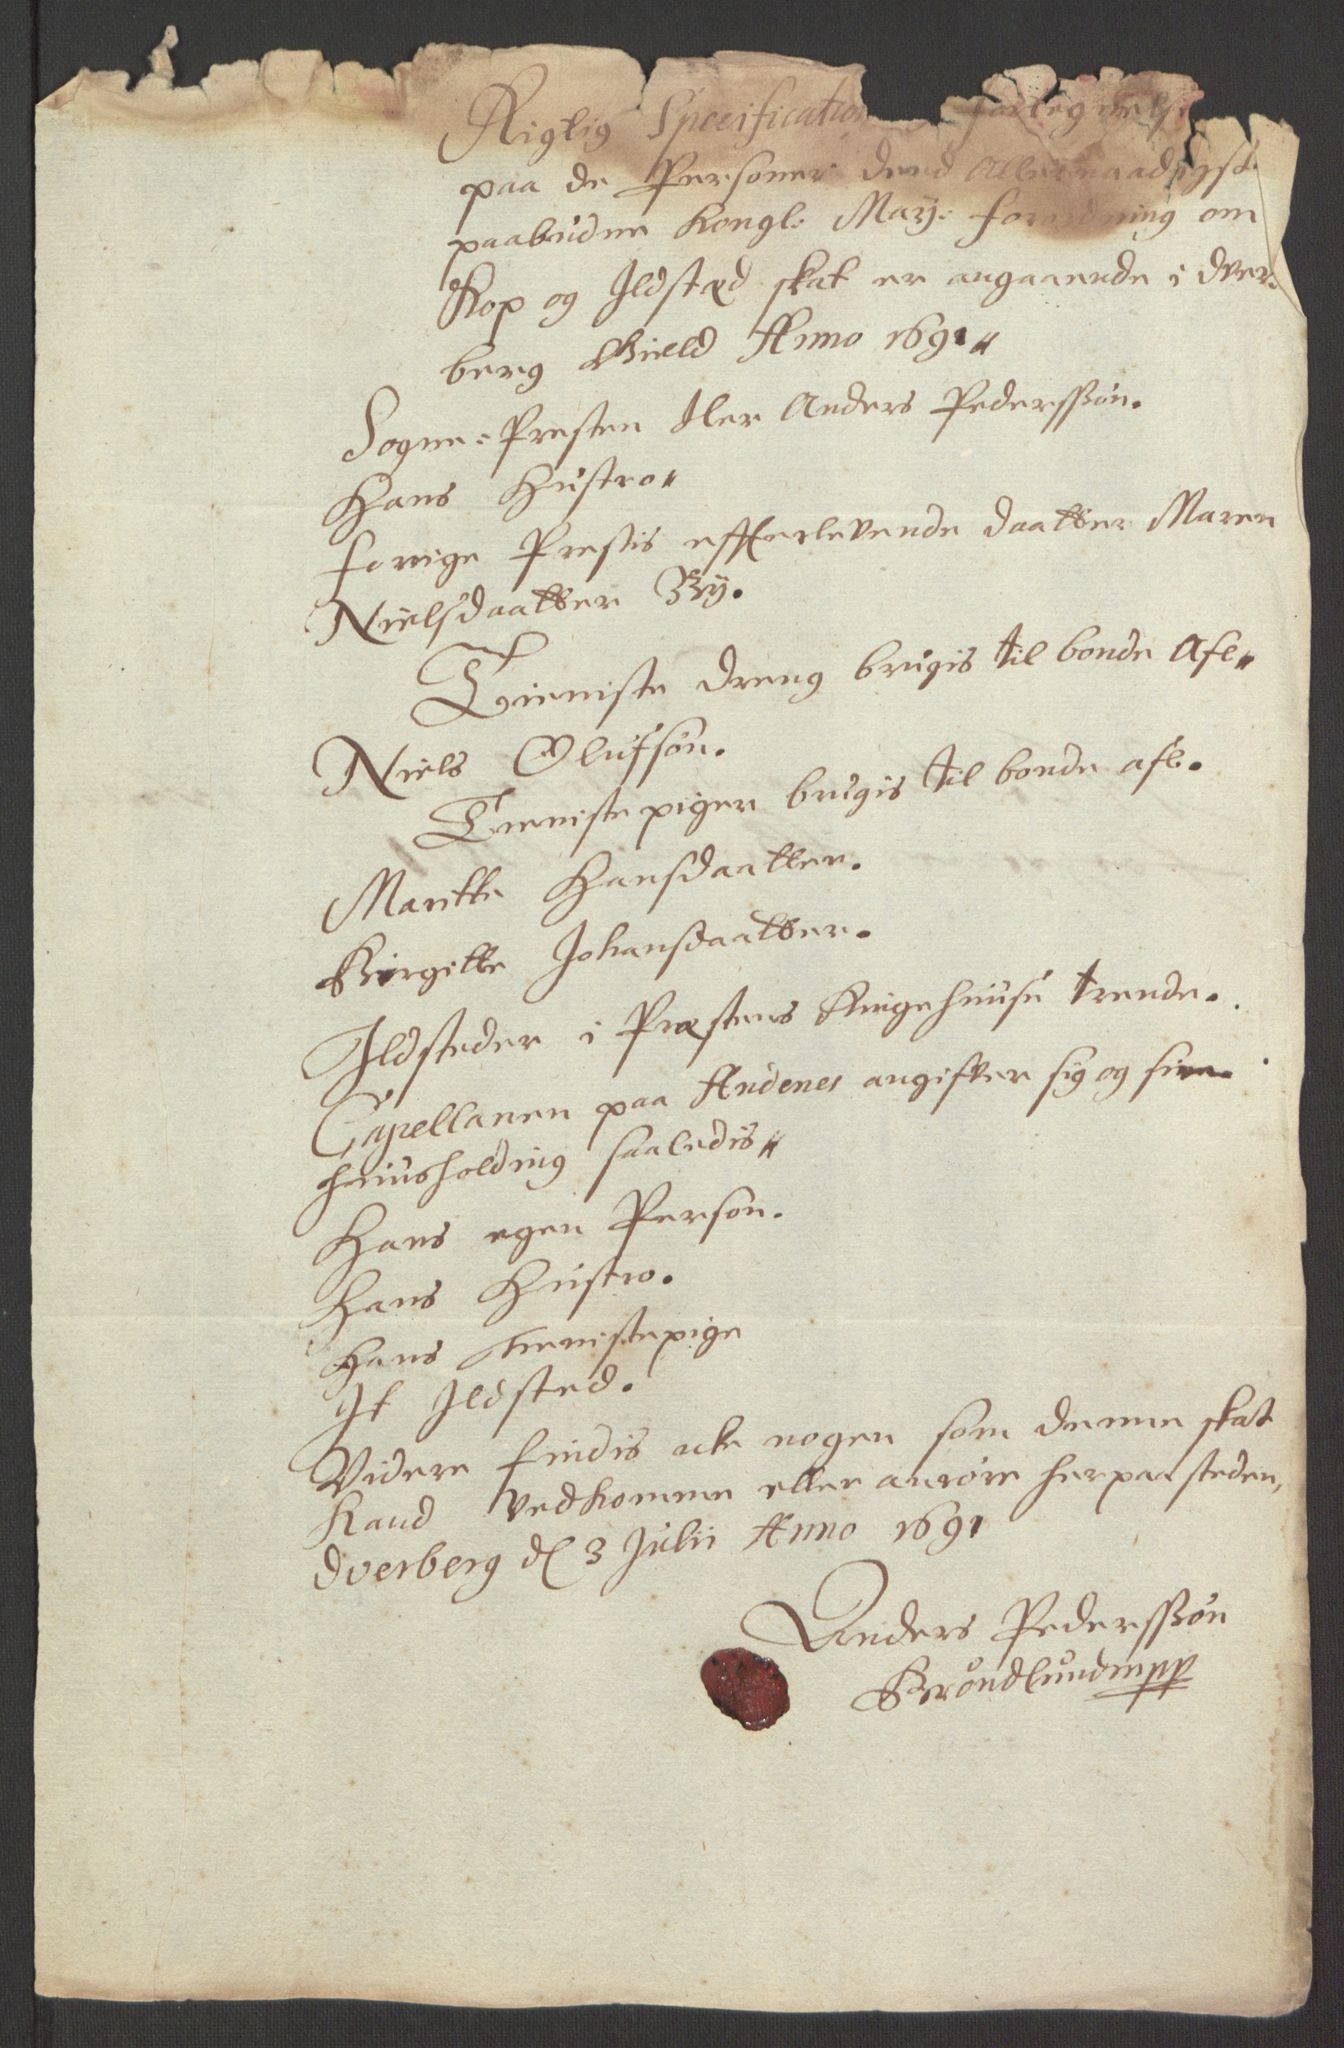 Rigtig Specification og fortegnelse
paa de Personer dend Allernaadigst
paabudne Kongl: May: forordning om
Kop og Ildsted skat er angaaende i Dver-
berg Gield Anno 1691
Sogne-Presten Her Anders Pederssøn.
Hans Hustro
forrige Prestis efterlevende daatter Maren
Nielsdaatter By.
Tieniste dreng brugis til bonde Afl
Niels Olufsøn.
Tienistepiger brugis til bonde afl.
Maritte Hansdaatter.
Birgitte Johansdaatter.
Ildsteder i Præstens Ringe huuse trende.
Capellanen paa Andenes angifver sig og sin
huusholding saaledis
Hans egen Person.
Hans Hustro.
Hans tienistepige
It Ildsted.
Videre findis icke nogen som denne skat
Kand vedkomme eller anrøre her paa steden,
Dverberg d 3 Julii Anno 1691
Anders Pederssøn
Brøndlund mpp